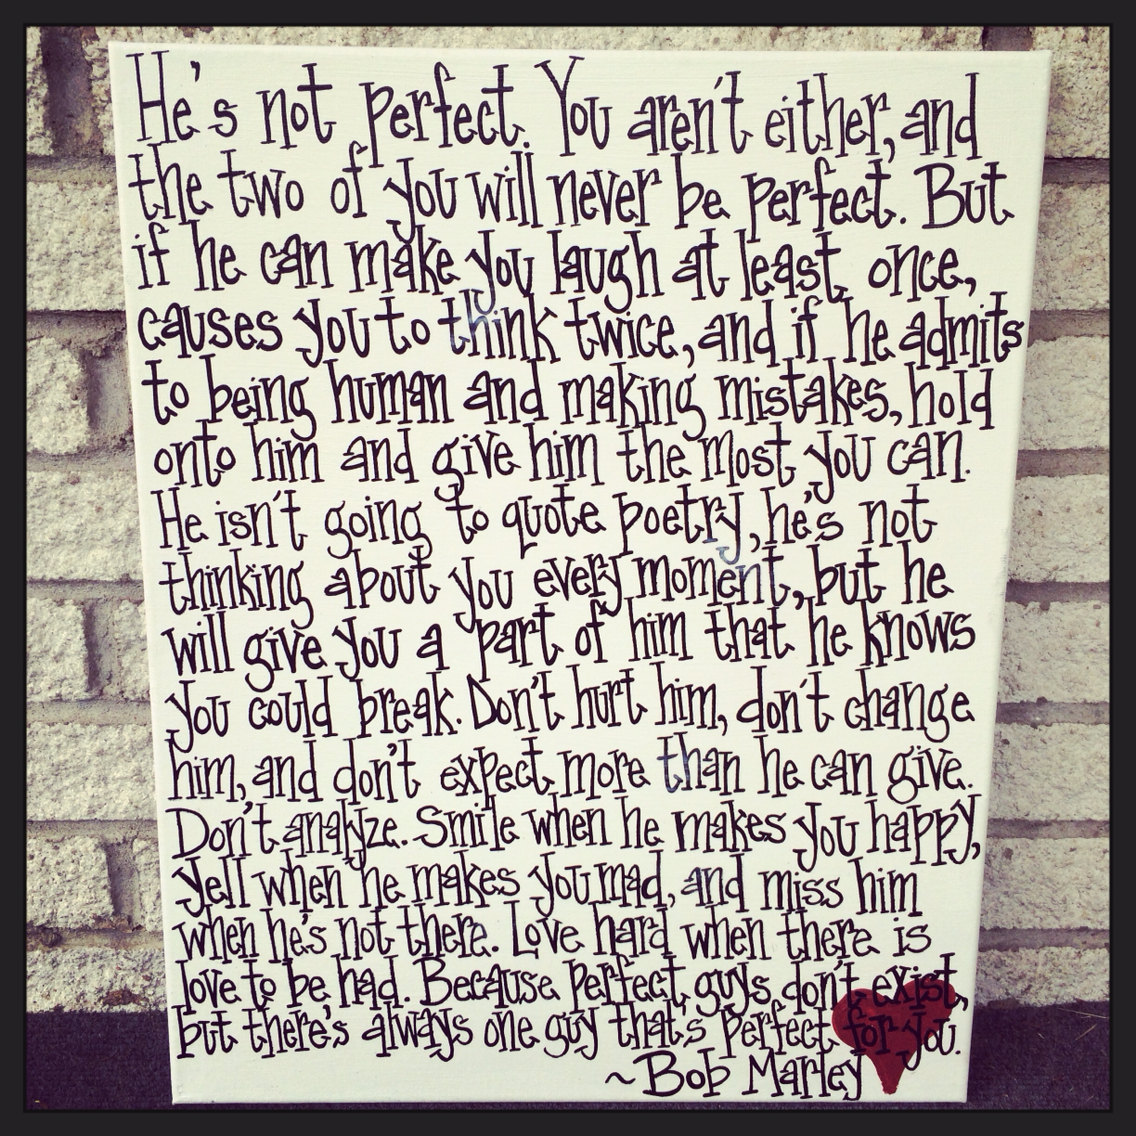 He's not perfect. You aren't either, and
the two of you will never be perfect. But
if he can make you laugh at least once,
causes you to think twice, and if he admits
to being human and making mistakes, hold
onto him and give him the most you can.
He isn't going to quote poetry, he's not
thinking about you every moment, but he
will give you a part of him that he knows
you could break. Don't hurt him, don't change
him, and don't expect more than he can give.
Don't analyze. Smile when he makes you happy,
yell when he makes you mad, and miss him
when he's not there. Love hard when there is
love to be had. Because perfect guys don't exist,
but there's always one guy that's perfect for you.
~Bob Marley